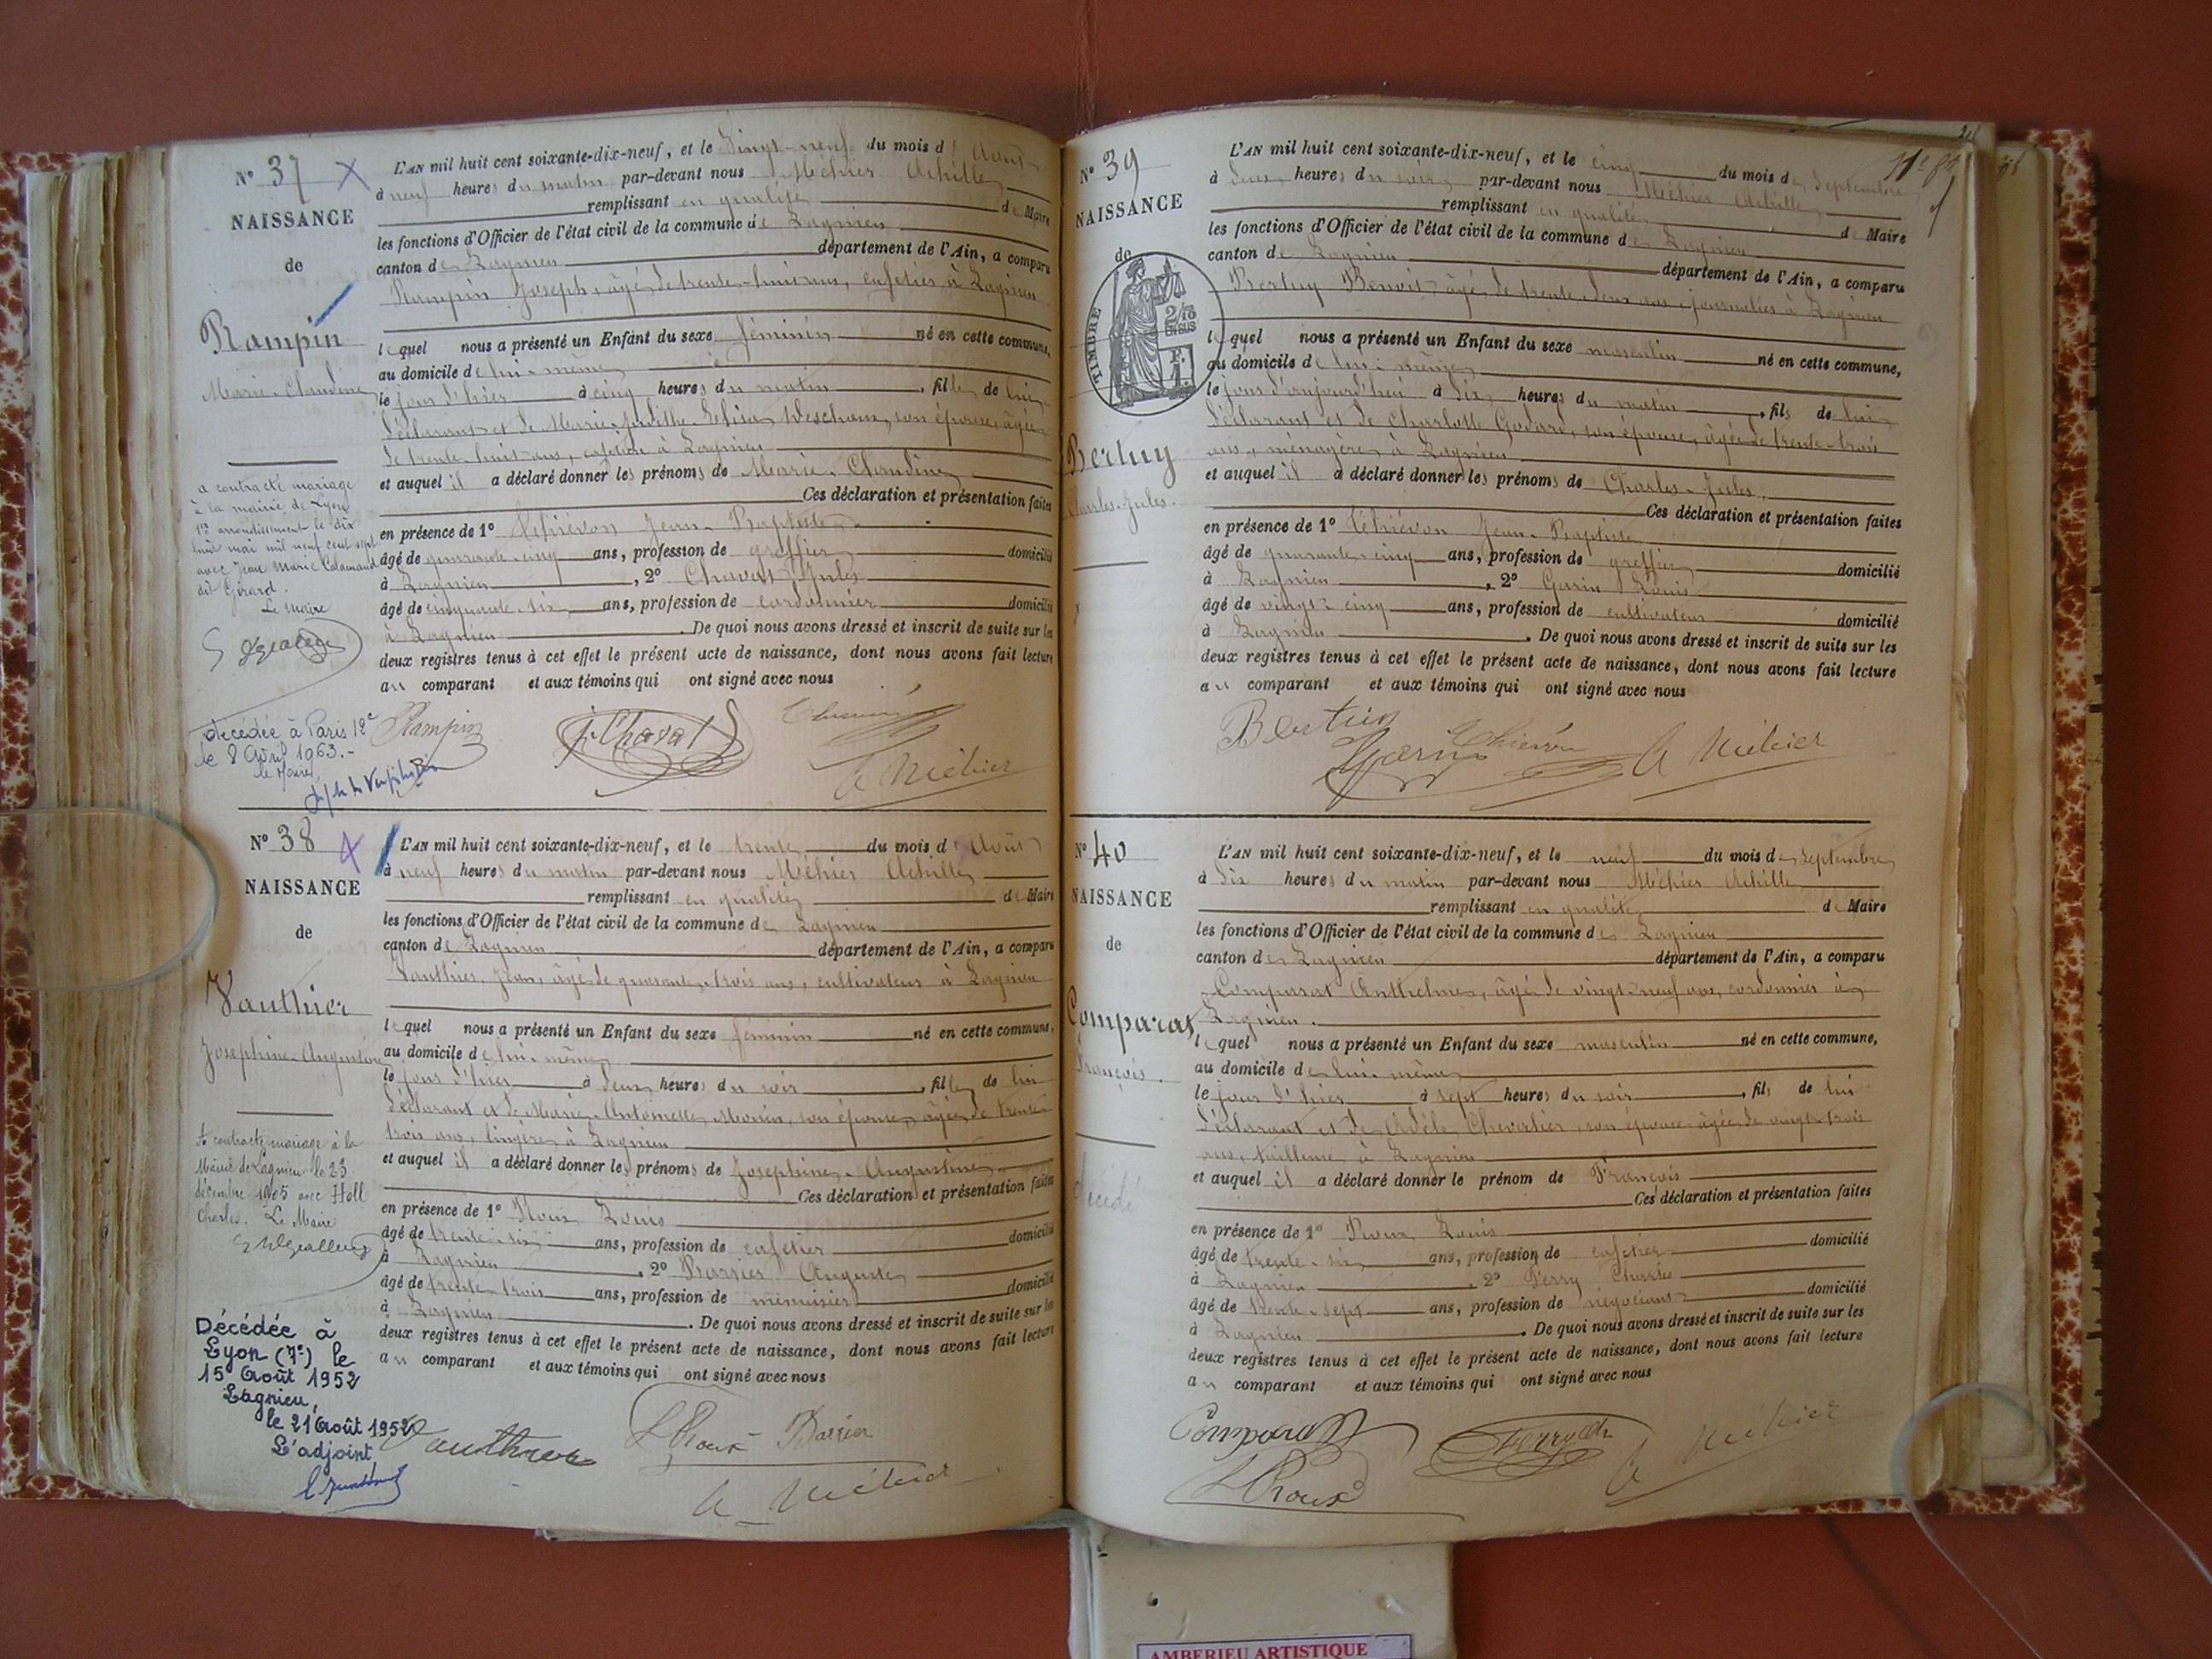 N° 37
NAISSANCE
de
Rampin
Marie-Claudine
a contracté mariage
à la mairie de Lyon
1er arrondissement le dix
huit mai mil neuf cent sept
avec Jean Marie
dit Girard.
Le Maire
décédée à Paris 12e
le 8 avril 1963.-
le Maire,
L'AN mil huit cent soixante-dix-neuf, et le vingt-neuf du mois d'Août
à neuf heures du matin par-devant nous Méhier Achille
remplissant en qualité de Maire
les fonctions d'Officier de l'état civil de la commune de Lagnieu
canton de Lagnieu département de l'Ain, a comparu
Rampin Joseph, âgé de trente-huit ans, cafetier à Lagnieu
lequel nous a présenté un Enfant du sexe féminin né en cette commune,
au domicile de lui-même
le jour d'hier à cinq heures du matin, fille de lui
déclarant et de Marie Judithe Elisa Deschaux, son épouse, âgée
de trente-huit ans, cafetière à Lagnieu
et auquel il a déclaré donner les prénoms de Marie-Claudine
Ces déclaration et présentation faites
en présence de 1° Thiévon Jean-Baptiste
âgé de quarante-cinq ans, profession de greffier domicilié
à Lagnieu, 2° Chavat Jules
âgé de cinquante-six ans, profession de cordonnier domicilié
à Lagnieu. De quoi nous avons dressé et inscrit de suite sur les
deux registres tenus à cet effet le présent acte de naissance, dont nous avons fait lecture
au comparant et aux témoins qui ont signé avec nous
Rampin J. Chavat Thiévon
A Méhier
N° 38
NAISSANCE
de
Vauthier
Josephine-Augustine
A contracté mariage à la
Mairie de Lagnieu le 23
décembre 1905 avec Holl
Charles. Le Maire
Décédée à
Lyon (7e) le
15 Août 1952
Lagnieu,
le 21 Août 1952
L'adjoint,
L'AN mil huit cent soixante-dix-neuf, et le trente du mois d'Août
à neuf heures du matin par-devant nous Méhier Achille
remplissant en qualité de Maire
les fonctions d'Officier de l'état civil de la commune de Lagnieu
canton de Lagnieu département de l'Ain, a comparu
Vauthier Jean, âgé de quarante-trois ans, cultivateur à Lagnieu
lequel nous a présenté un Enfant du sexe féminin né en cette commune,
au domicile de lui-même
le jour d'hier à deux heures du soir, fille de lui
déclarant et de Marie-Antoinette Morin, son épouse, âgée de trente
trois ans, lingère à Lagnieu
et auquel il a déclaré donner les prénoms de Josephine-Augustine
Ces déclaration et présentation faites
en présence de 1° Roux Louis
âgé de trente-six ans, profession de cafetier domicilié
à Lagnieu, 2° Barrier Auguste
âgé de trente-trois ans, profession de menuisier domicilié
à Lagnieu. De quoi nous avons dressé et inscrit de suite sur les
deux registres tenus à cet effet le présent acte de naissance, dont nous avons fait lecture
au comparant et aux témoins qui ont signé avec nous
Vauthier L Roux Barrier
A Méhier
N° 39
NAISSANCE
de
TIMBRE
2/10
EN SUS
Bertuy
Charles-Jules.
L'AN mil huit cent soixante-dix-neuf, et le cinq du mois de Septembre
à deux heures du soir, par-devant nous Méhier Achille
remplissant en qualité de Maire
les fonctions d'Officier de l'état civil de la commune de Lagnieu
canton de Lagnieu département de l'Ain, a comparu
Bertuy Benoit, âgé de trente-deux ans, journalier à Lagnieu
lequel nous a présenté un Enfant du sexe masculin né en cette commune,
au domicile de lui-même
le jour d'aujourd'hui à dix heures du matin, fils de lui
déclarant et de Charlotte Godard, son épouse, âgée de trente-trois
ans, ménagère à Lagnieu
et auquel il a déclaré donner les prénoms de Charles-Jules.
Ces déclaration et présentation faites
en présence de 1° Thiévon Jean-Baptiste
âgé de quarante-cinq ans, profession de greffier domicilié
à Lagnieu, 2° Garin Louis
âgé de vingt-cinq ans, profession de cultivateur domicilié
à Lagnieu. De quoi nous avons dressé et inscrit de suite sur les
deux registres tenus à cet effet le présent acte de naissance, dont nous avons fait lecture
au comparant et aux témoins qui ont signé avec nous
Garin Thiévon A Méhier
N° 40
NAISSANCE
de
Comparat
François.
Décédé
L'AN mil huit cent soixante-dix-neuf, et le neuf du mois de Septembre
à dix heures du matin par-devant nous Méhier Achille
remplissant en qualité de Maire
les fonctions d'Officier de l'état civil de la commune de Lagnieu
canton de Lagnieu département de l'Ain, a comparu
Comparat Anthelme, âgé de vingt-neuf ans, cordonnier à
Lagnieu.
lequel nous a présenté un Enfant du sexe masculin né en cette commune,
au domicile de lui-même
le jour d'hier à sept heures du soir, fils de lui
déclarant et de Adèle Chevalier, son épouse, âgée de vingt-trois
ans, tailleuse à Lagnieu
et auquel il a déclaré donner le prénom de François
Ces déclaration et présentation faites
en présence de 1° Roux Louis
âgé de trente-six ans, profession de cafetier domicilié
à Lagnieu, 2° Ferry Charles
âgé de trente-sept ans, profession de négociant domicilié
à Lagnieu. De quoi nous avons dressé et inscrit de suite sur les
deux registres tenus à cet effet le présent acte de naissance, dont nous avons fait lecture
au comparant et aux témoins qui ont signé avec nous
Comparat Ferry Ch A Méhier
L Roux
AMBERIEU ARTISTIQUE